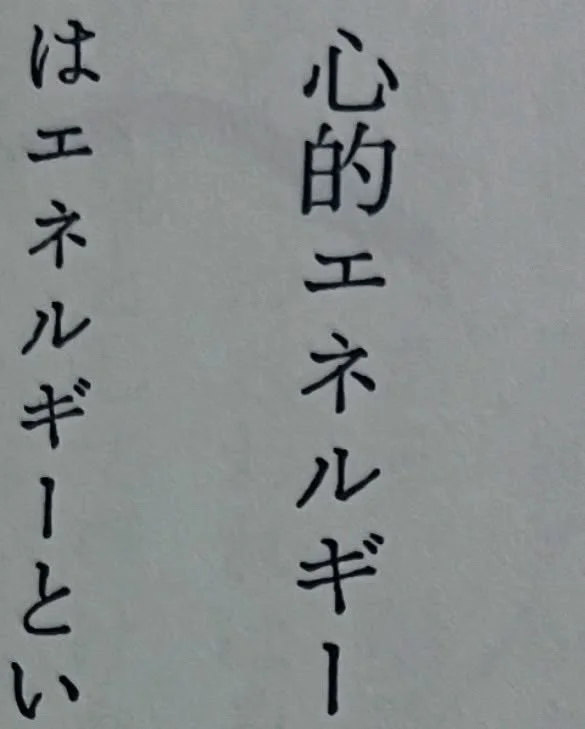 心的エネルギー
はエネルギーとい